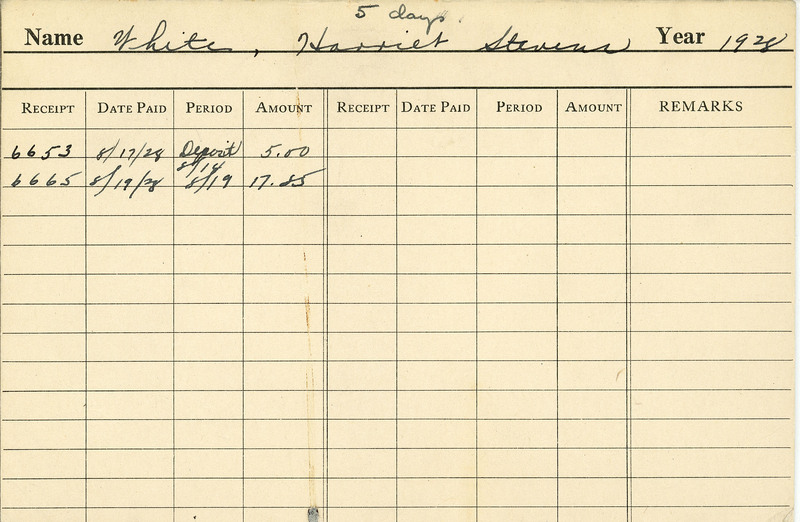 5 days
Name White, Harriet Stevens Year 1928
RECEIPT DATE PAID PERIOD AMOUNT RECEIPT DATE PAID PERIOD AMOUNT REMARKS
6653 8/17/28 Deposit 5.00
8/14
6665 8/19/28 8/19 17.85